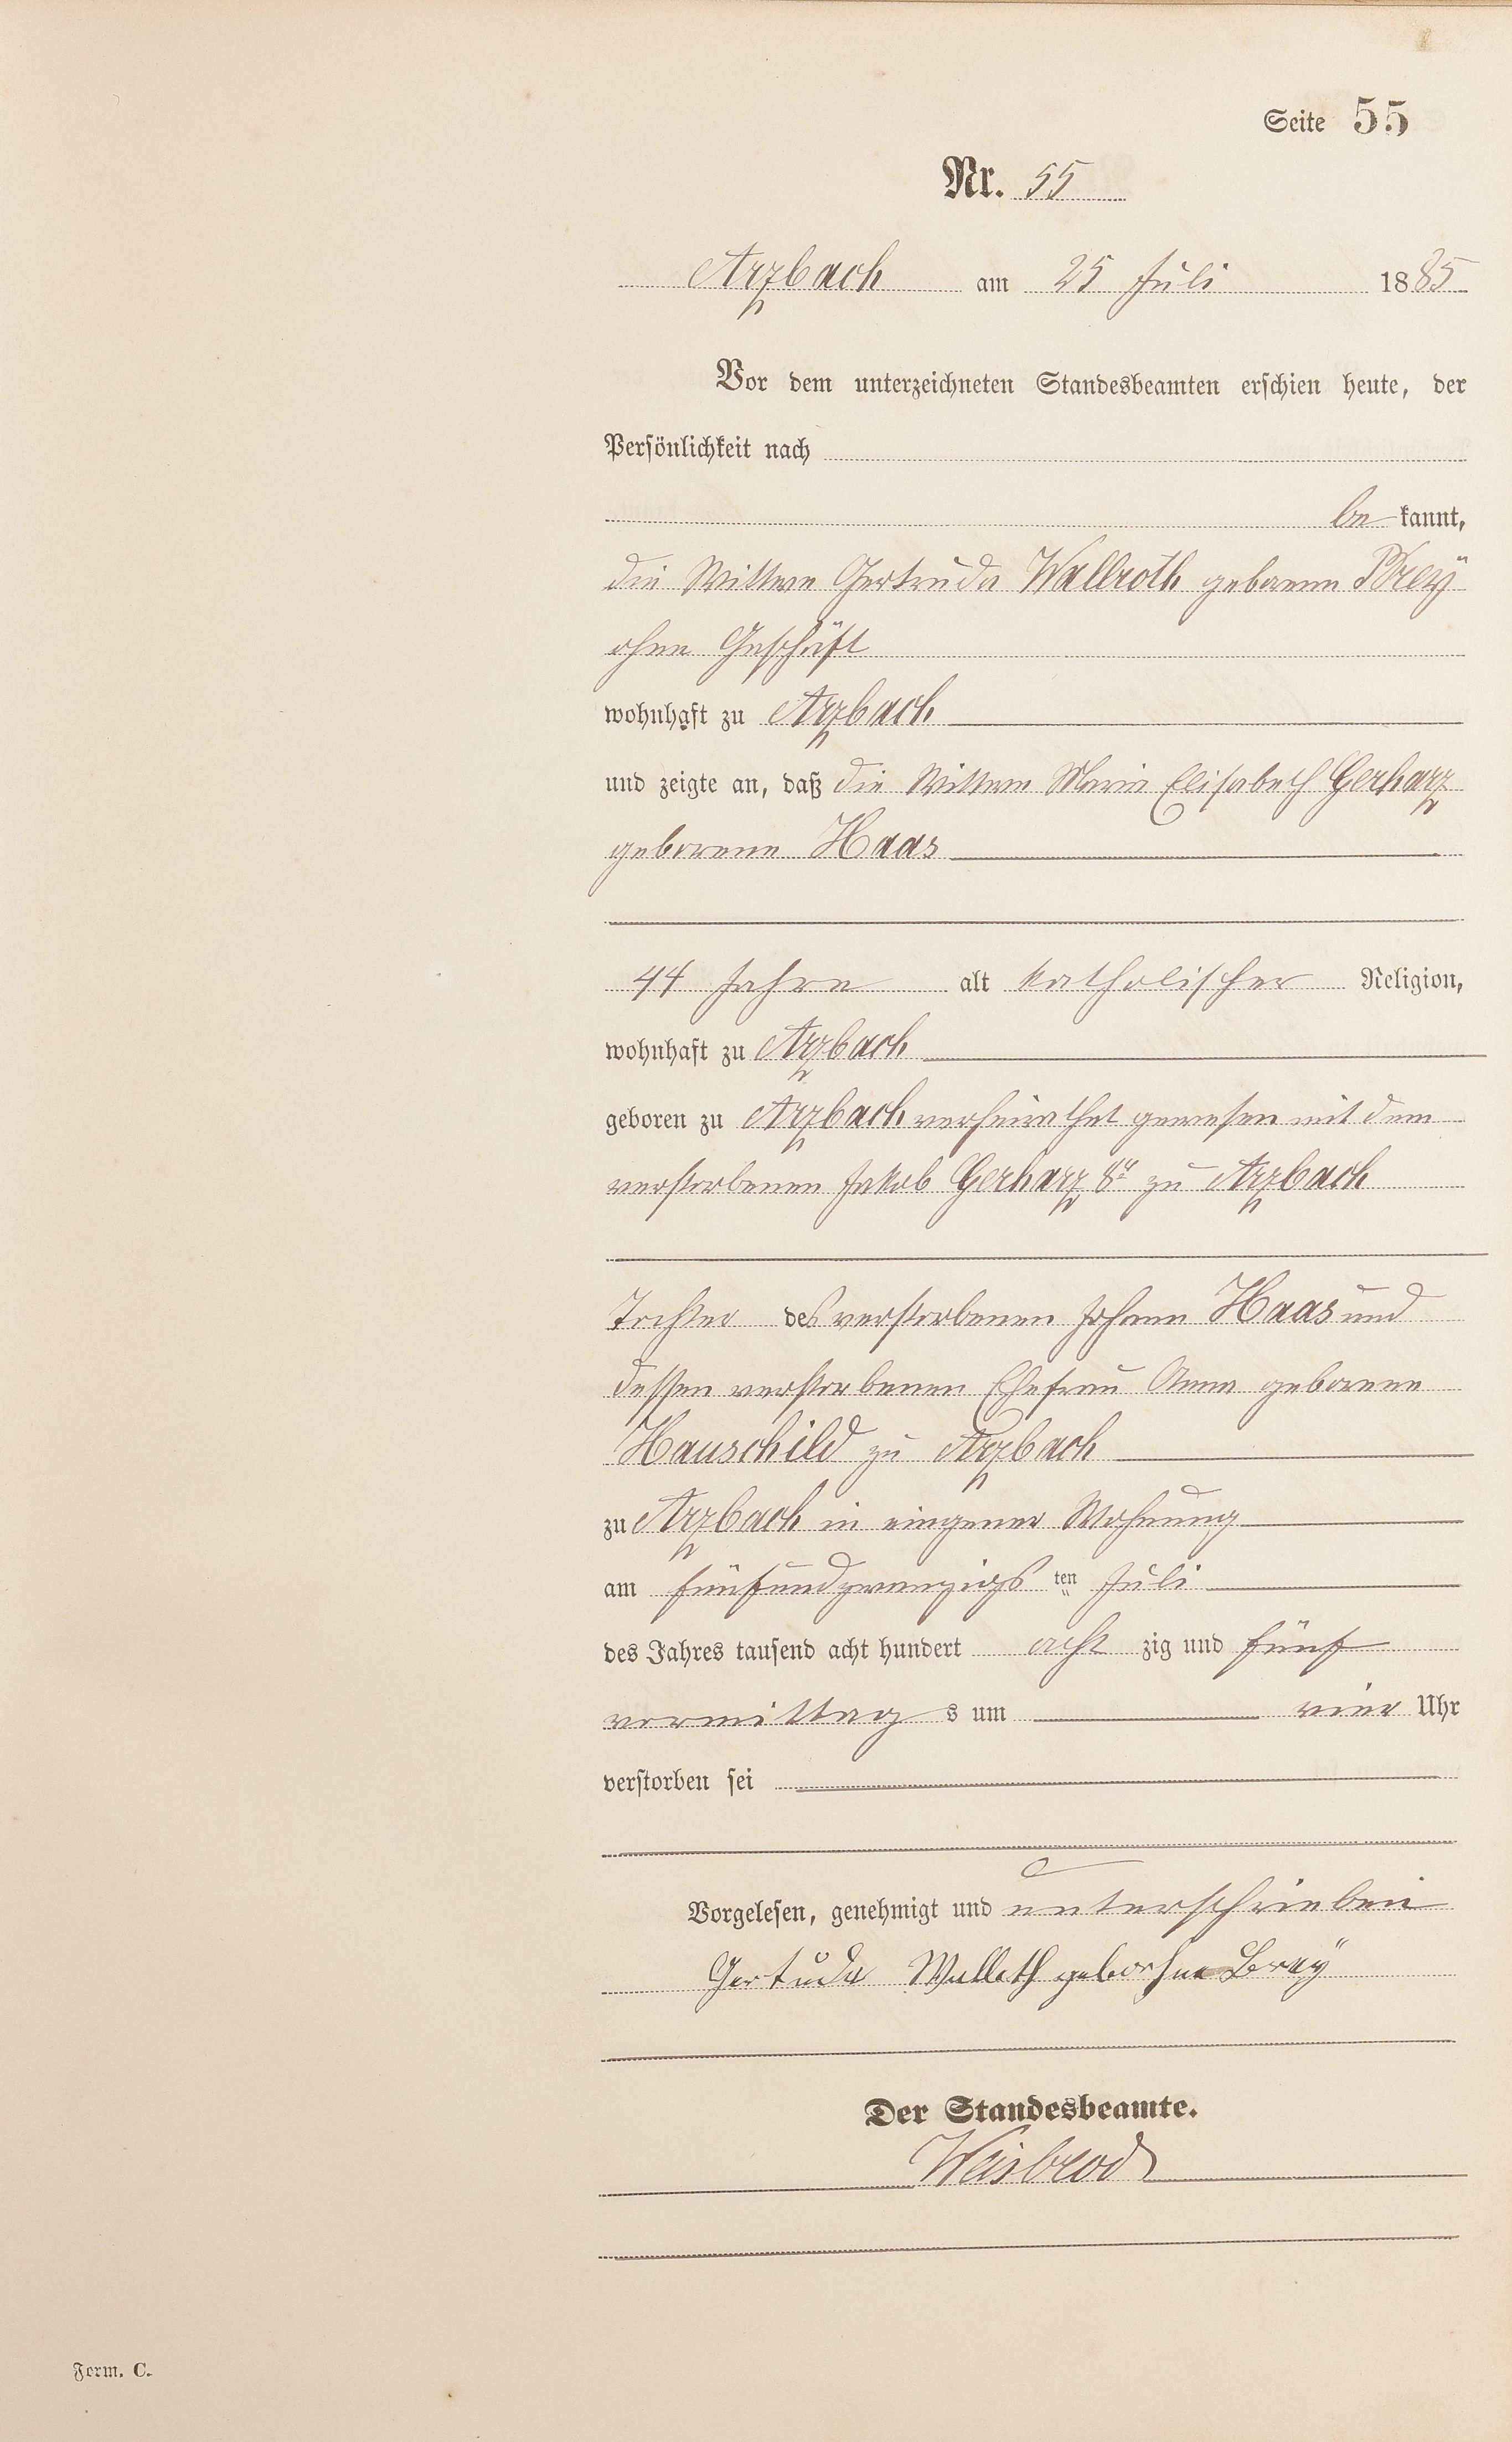 Seite 55
Nr. 55
Arzbach am 25 Juli 1885
Vor dem unterzeichneten Standesbeamten erschien heute, der
Persönlichkeit nach
be kannt,
die Wittwe Gertruda Wallroth geborene Brey
ohne Geschäft
wohnhaft zu Arzbach
und zeigte an, daß die Wittwe Maria Elisabeth Gerharz
geborene Haas
44 Jahre alt katholischer Religion,
wohnhaft zu Arzbach
geboren zu Arzbach verheirathet gewesen mit dem
verstorbenen Jakob Gerharz 8r zu Arzbach
Tochter des verstorbenen Johann Haas und
dessen verstorbenen Ehefrau Anna geborene
Hauschild zu Arzbach
zu Arzbach in eingener Wohnung
am fünfundzwanzigs ten Juli
des Jahres tausend acht hundert acht zig und fünf
vormittag s um vier Uhr
verstorben sei
Vorgelesen, genehmigt und unterschrieben
Gertuda Walloth geborhne Brey
Der Standesbeamte.
Weisbrod
Form. C.